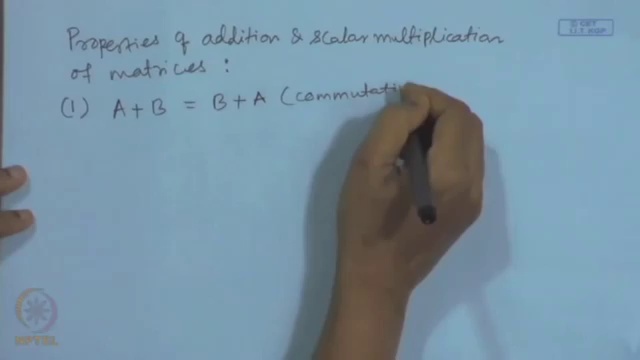 Properties of addition & scalar multiplication
of matrices :
(1) A + B = B + A (commutati
© CET
I.I.T. KGP
NPTEL